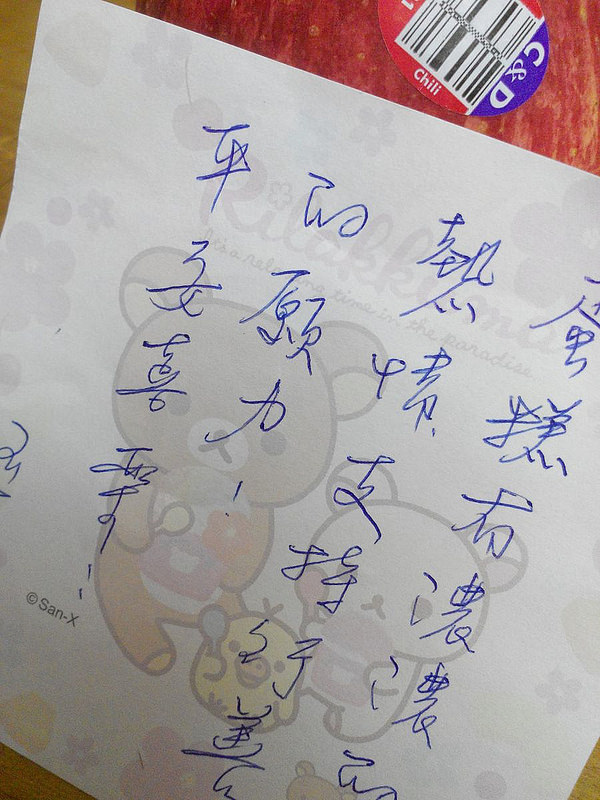 C&D
Chili
Rilakkuma
It's a relaxing time in the paradise
蛋糕有濃濃的
熱情支持行善
的願力!
平安喜樂!
©San-X